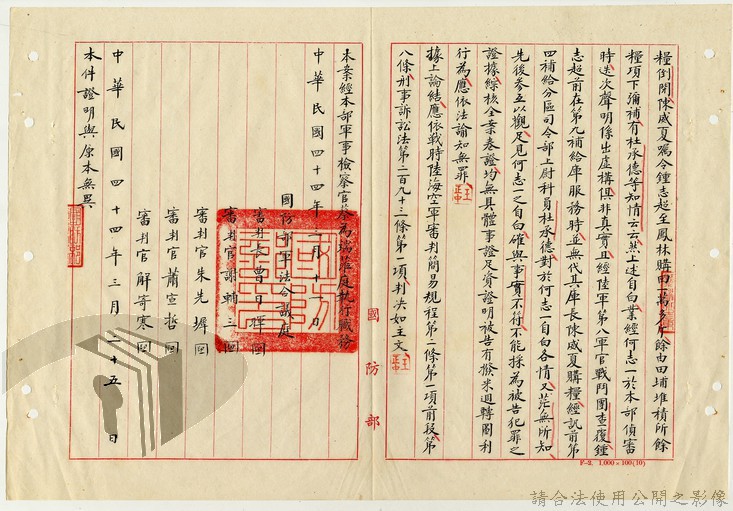 糧倒閉陳威夏囑令鍾志超至鳳林購回一萬多斤餘由田埔堆積所餘
糧項下彌補有杜承德等知情云云然上述自白業經何志一於本部偵審
時迭次聲明係出虛構俱非真實且經陸軍第八軍官戰鬥團查復鍾
志超前在第九補給庫服務時並無代其庫長陳威夏購糧經訊前第
四補給分區司令部上尉科員杜承德對於何志一自白各情又茫無所知
先後參互以觀足見何志一之自白確與事實不符不能採為被告犯罪之
證據綜核全案卷證均無具體事證足資證明被告有撥米週轉圖利
行為應依法諭知無罪
據上論結應依戰時陸海空軍審判簡易規程第一條第一項前段第
八條刑事訴訟法第二百九十三條第一項判決如主文
本案經本部軍事檢察官蒞庭執行職務
中華民國四十四年 月十一日
國防部軍法合議庭
審判長曹日暉
審判官謝輔三
審判官朱先墀
審判官蕭宣哲
審判官解寄寒
中華民國四十四年三月二十五日
本件證明與原本無異
國防部
F-2. 1.000×100(10)
請合法使用公開之影像